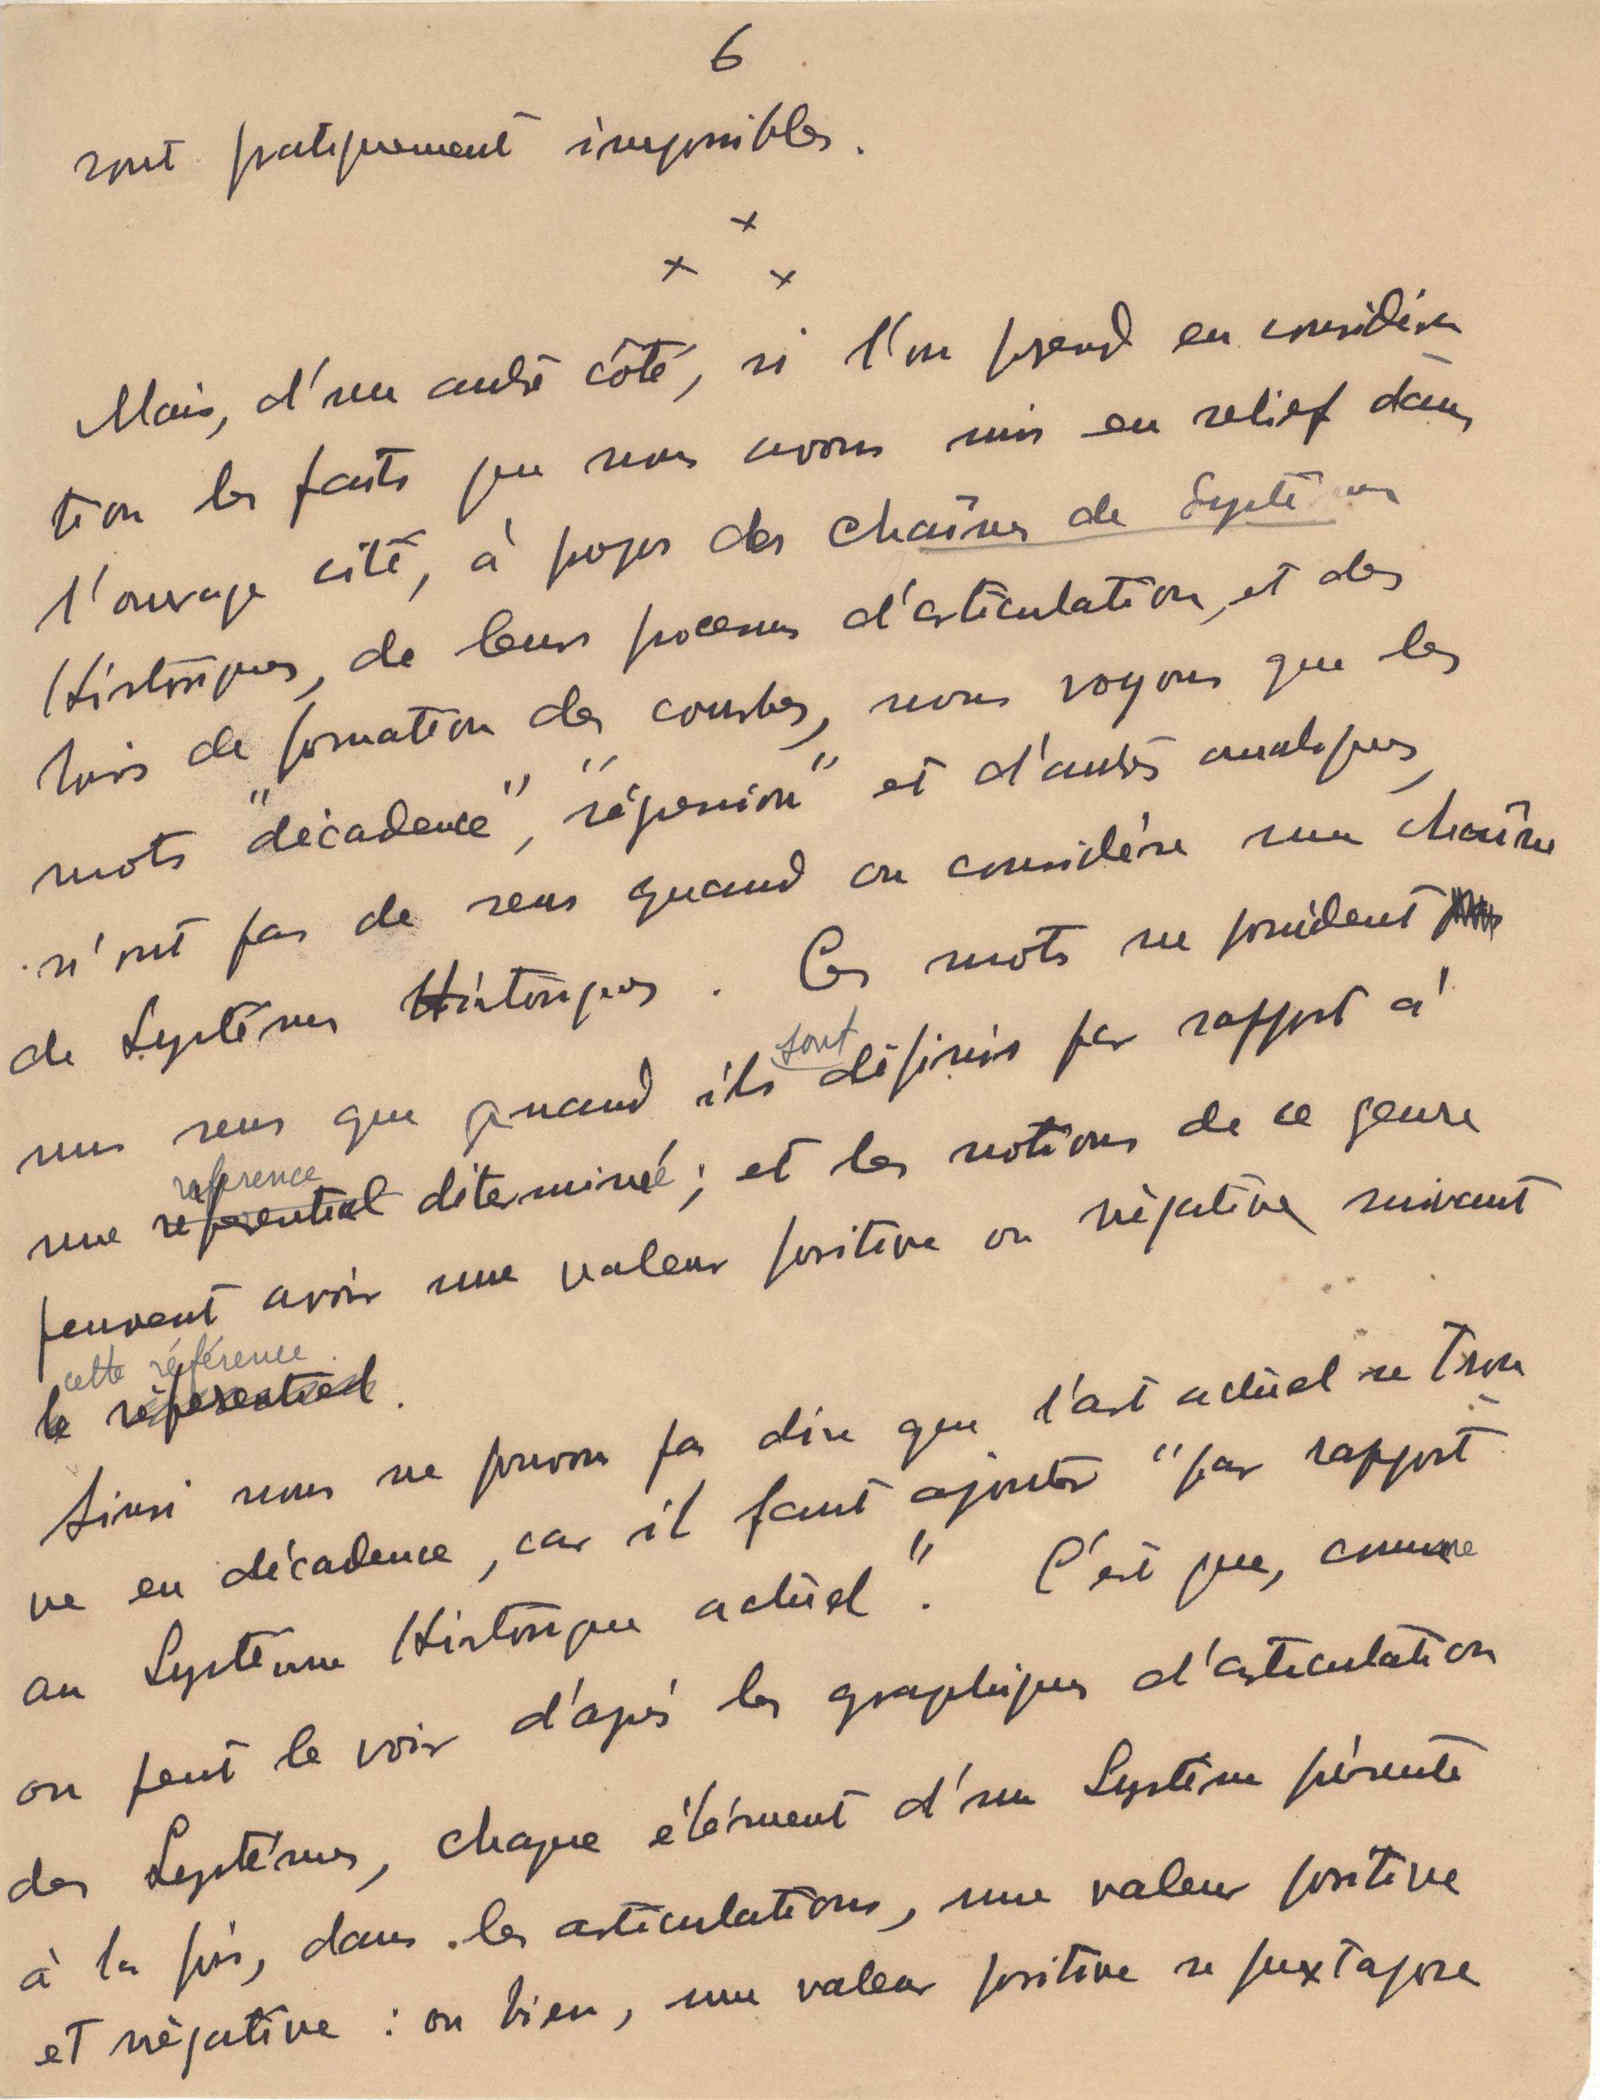 6
sont pratiquement impossibles.
x
x x
Mais, d'un autre côté, si l'on prend en considéra
tion les faits que nous avons mis en relief dans
l'ouvrage cité, à propos des chaînes de Systèmes
Historiques, de leurs processus d'articulation, et des
lois de formation des courbes, nous voyons que les
mots "décadence", "régression" et d'autres analogues,
n'ont pas de sens quand on considère une chaîne
de Systèmes Historiques. Ces mots ne possèdent
sont
un sens que quand ils définis par rapport à
reference
une référentiel déterminée; et les notions de ce genre
peuvent avoir une valeur positive ou négative suivant
cette référence
le référentiel.
Ainsi nous ne pouvons pas dire que l'art actuel se trou
ve en décadence, car il faut ajouter "par rapport
au Système Historique actuel". C'est que, comme
on peut le voir d'après les graphiques d'articulation
des Systèmes, chaque élément d'un Système présente
à la fois, dans les articulations, une valeur positive
et négative : ou bien, une valeur positive se juxtapose